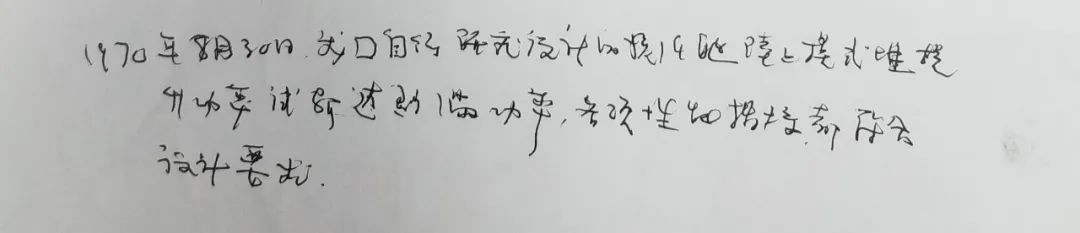 1970年8月30日.我国自行研究设计的核潜艇陆上模式堆提
升功率试验达到满功率,各项性能指标都符合
设计要求.